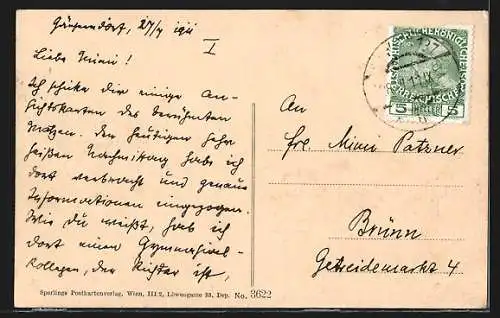 Gänserndorf, 27/4 1911
I
Liebe Mimi!
Ich schicke dir einige An-
sichtskarten des berühmten
Matzen. Den heutigen sehr
heißen Nachmittag hab ich
dort verbracht und genaue
Informationen eingezogen.
Wie du weißt, hab ich
dort einen Gymnasial-
kollegen, der Richter ist,
An
Frl. Mimi Patzner
Brünn
Getreidemarkt 4
5 5
Sperlings Postkartenverlag, Wien, III/2, Löwengasse 33, Dep. No. 3622